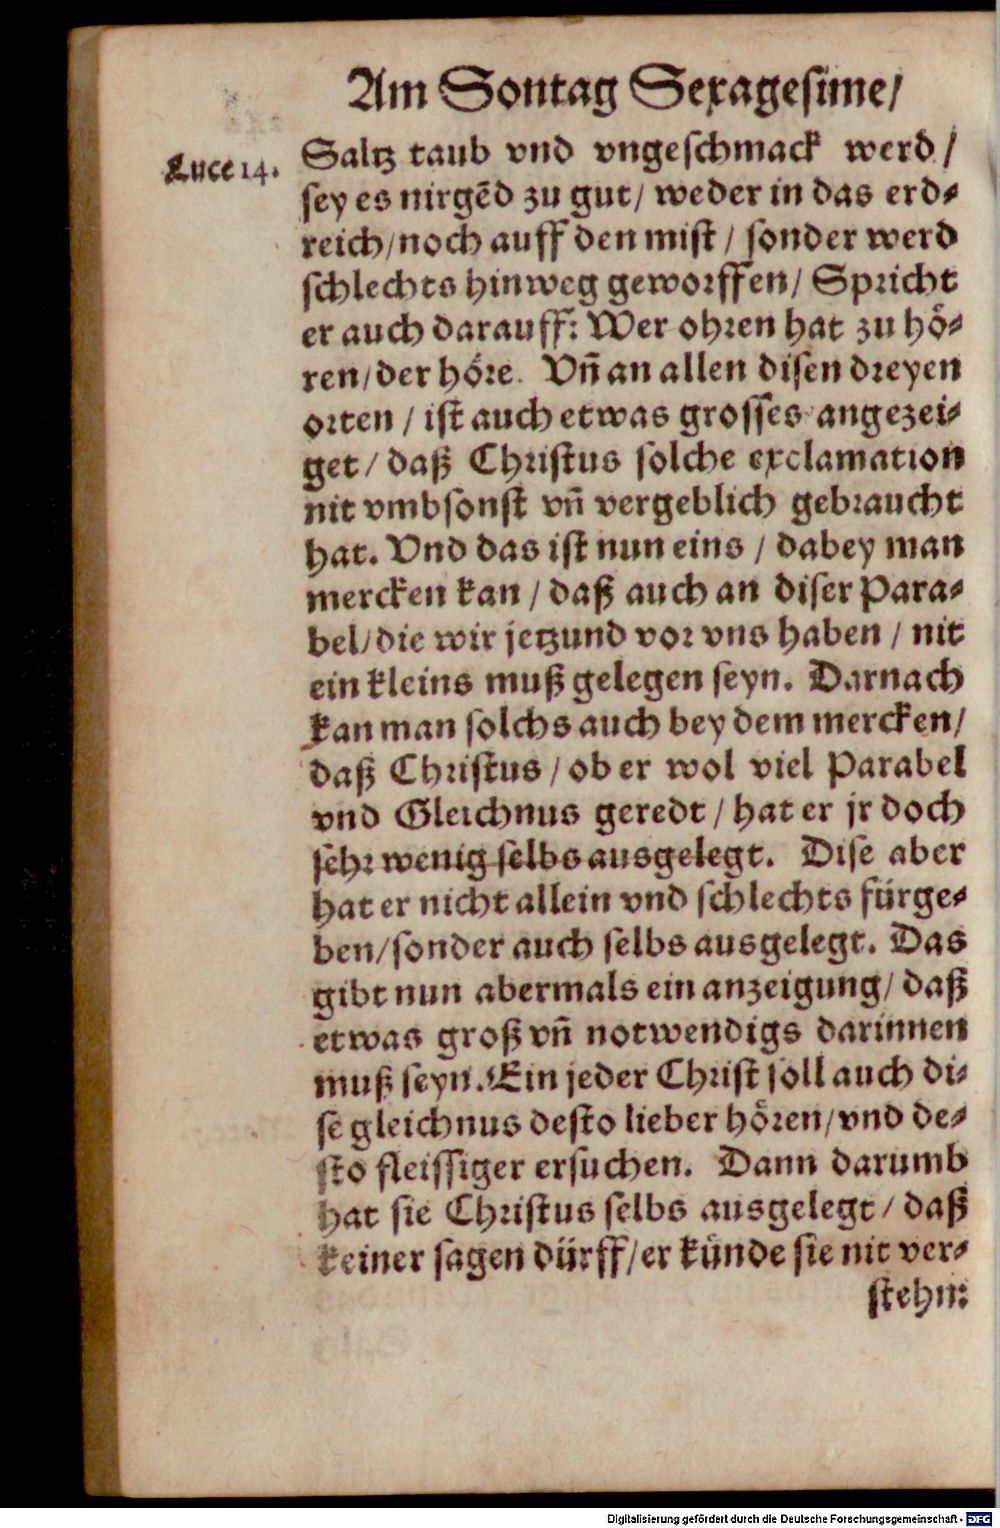 Am Sontag Sexagesime/
Luce 14.
Saltz taub vnd vngeschmack werd/
sey es nirgẽd zu gut/ weder in das erd-
reich/noch auff den mist/ sonder werd
schlechts hinweg geworffen/ Spricht
er auch darauff: Wer ohren hat zu hö-
ren/der höre. Vñ an allen disen dreyen
orten/ ist auch etwas grosses angezei-
get/ daß Christus solche exclamation
nit vmbsonst vñ vergeblich gebraucht
hat. Vnd das ist nun eins/ dabey man
mercken kan/ daß auch an diser Para-
bel/die wir jetzund vor vns haben/ nit
ein kleins muß gelegen seyn. Darnach
kan man solchs auch bey dem mercken/
daß Christus/ ob er wol viel Parabel
vnd Gleichnus geredt/ hat er jr doch
sehr wenig selbs ausgelegt. Dise aber
hat er nicht allein vnd schlechts fürge-
ben/sonder auch selbs ausgelegt. Das
gibt nun abermals ein anzeigung/ daß
etwas groß vñ notwendigs darinnen
muß seyn. Ein jeder Christ soll auch di-
se gleichnus desto lieber hören/vnd de-
sto fleissiger ersuchen. Dann darumb
hat sie Christus selbs ausgelegt/ daß
keiner sagen dürff/er künde sie nit ver-
stehn:
Digitalisierung gefördert durch die Deutsche Forschungsgemeinschaft - DFG